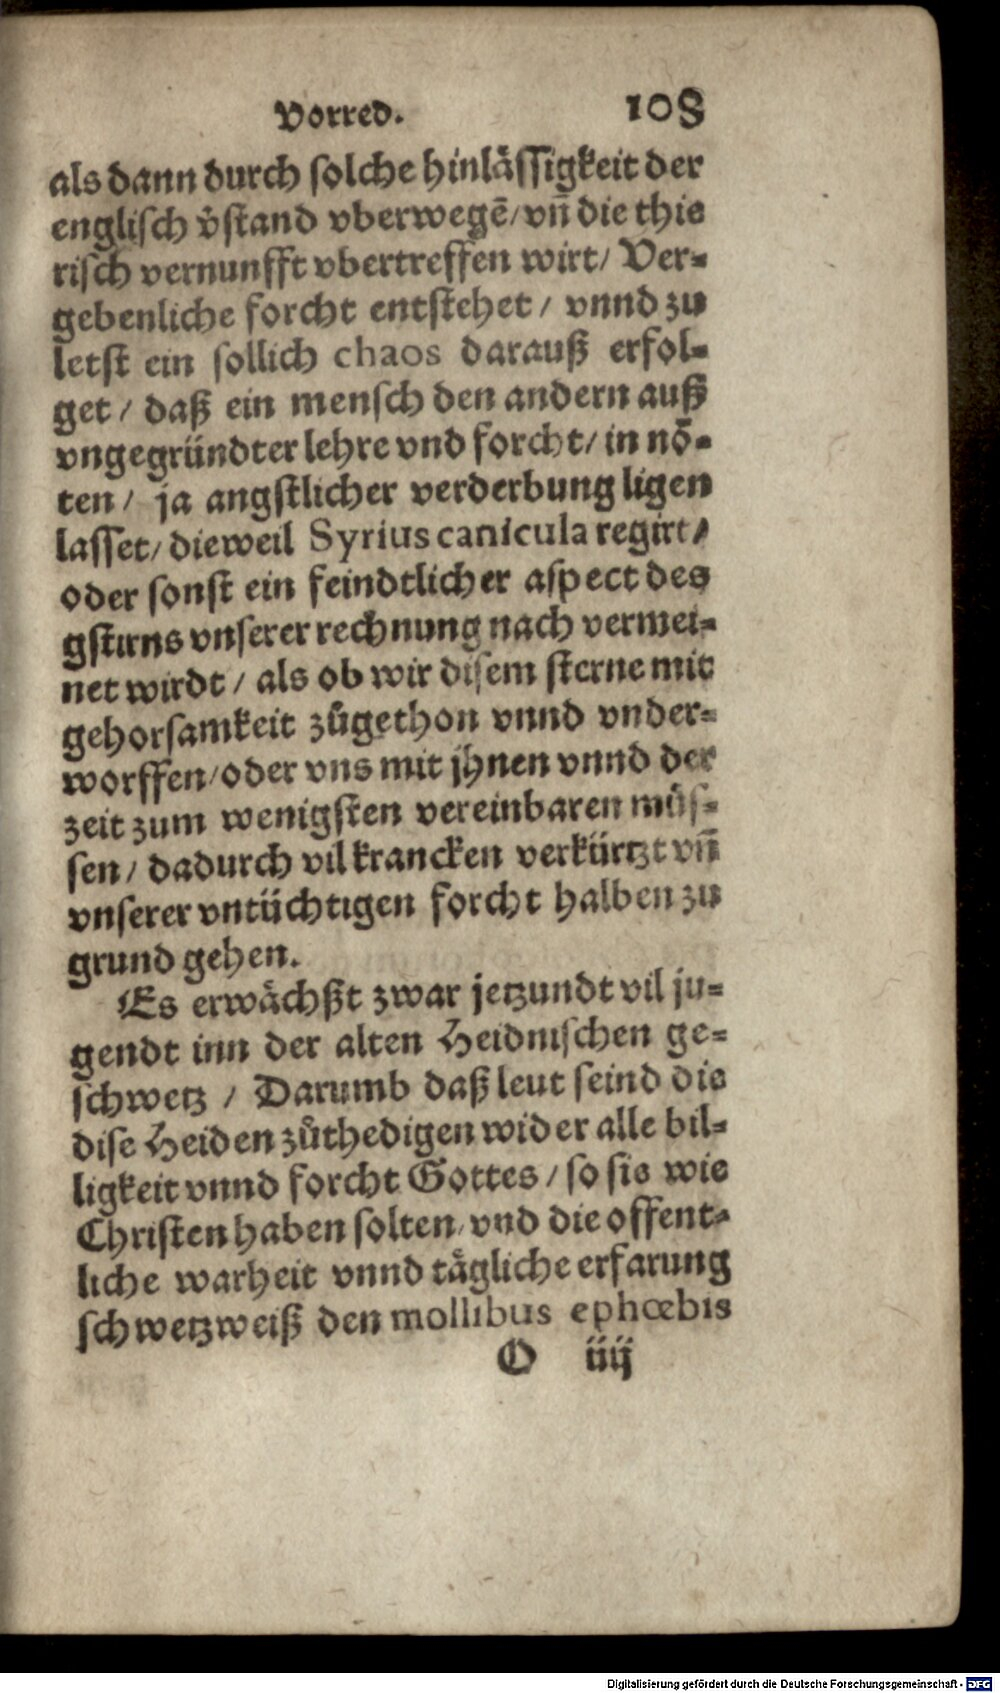 Vorred. 108
als dann durch solche hinlässigkeit der
englisch v̊stand vberwegē/ vñ die thie
risch vernunfft vbertreffen wirt/ Ver-
gebenliche forcht entstehet / vnnd zu
letst ein sollich chaos darauß erfol-
get / daß ein mensch den andern auß
vngegründter lehre vnd forcht/ in nö-
ten / ja angstlicher verderbung ligen
lasset/ dieweil Syrius canicula regirt/
oder sonst ein feindtlicher aspect des
gstirns vnserer rechnung nach vermei-
net wirdt / als ob wir disem sterne mit
gehorsamkeit zůgethon vnnd vnder-
worffen/ oder vns mit jhnen vnnd der
zeit zum wenigsten vereinbaren můs-
sen / dadurch vil krancken verkürtzt vñ
vnserer vntüchtigen forcht halben zu
grund gehen.
Es erwächßt zwar jetzundt vil ju-
gendt inn der alten Heidnischen ge-
schwetz / Darumb daß leut seind die
dise Heiden zůthedigen wider alle bil-
ligkeit vnnd forcht Gottes / so sie wie
Christen haben solten/ vnd die offent-
liche warheit vnnd tägliche erfarung
schwetzweiß den mollibus ephœbis
O iiij
Digitalisierung gefördert durch die Deutsche Forschungsgemeinschaft - DFG